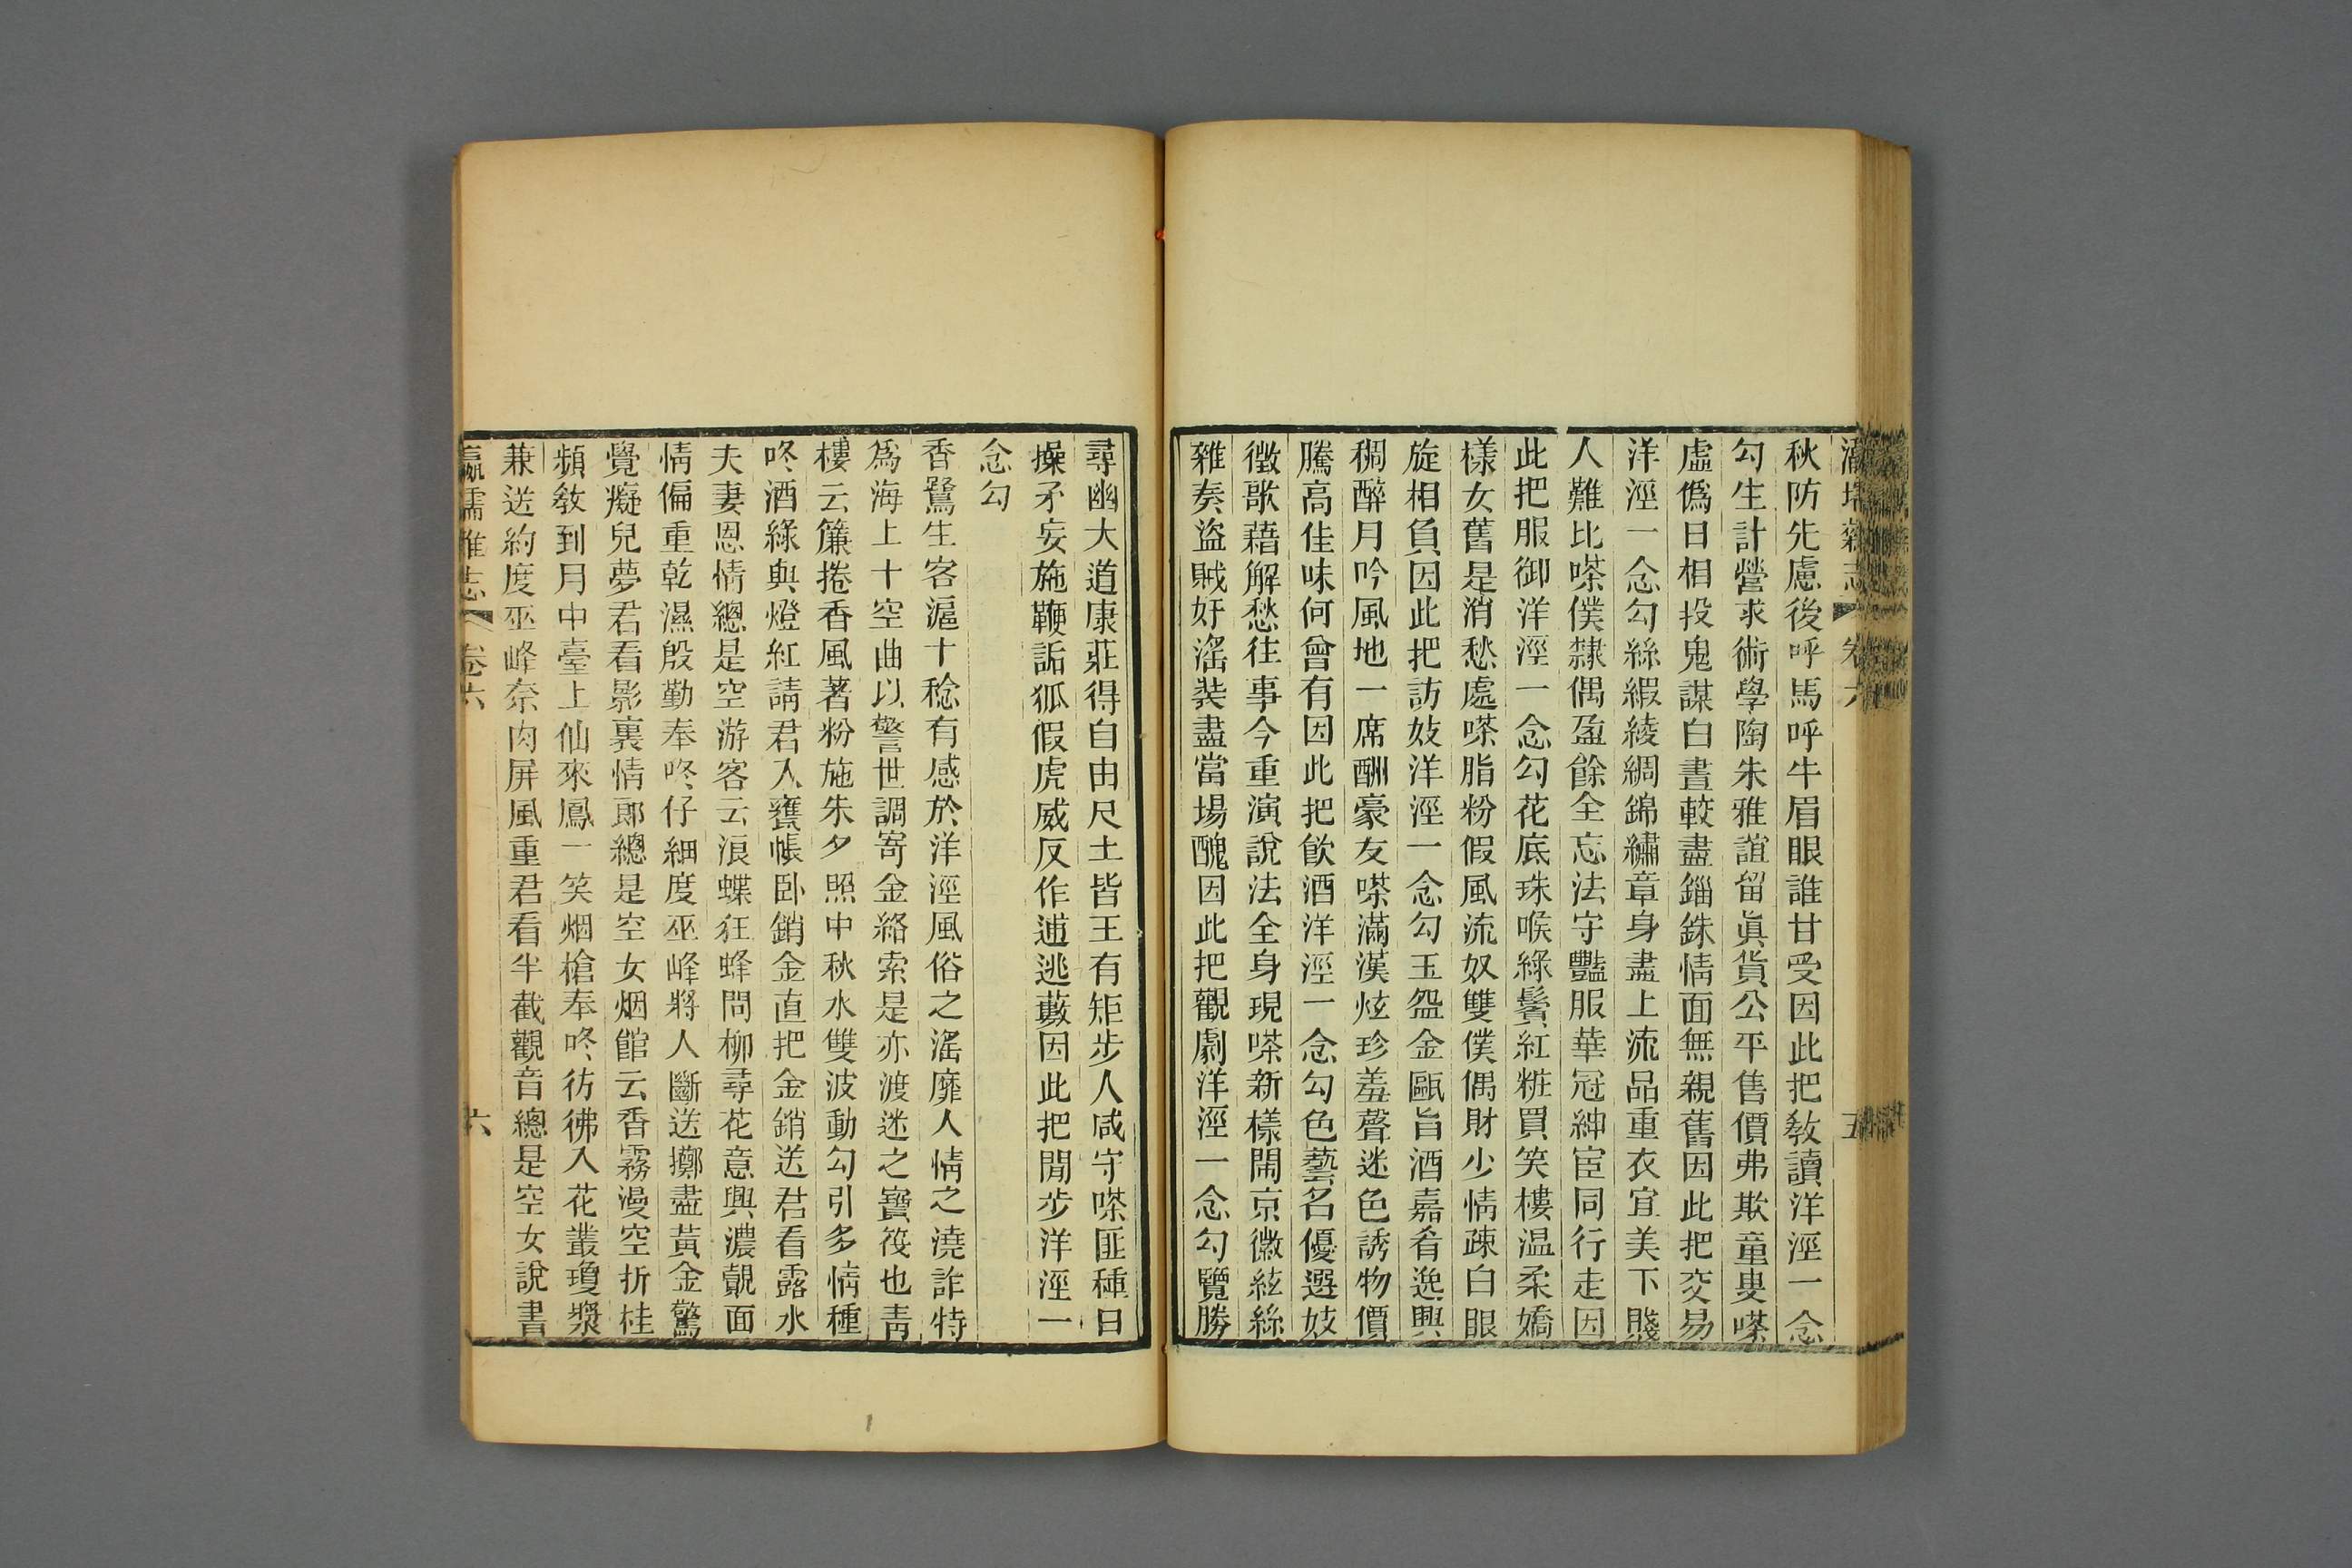 秋防先慮後呼馬呼牛眉眼誰甘受因此把敎讀洋涇一念
勾生計營求術學陶朱雅誼留眞貨公平售價弗欺童叟嗏
虛僞日相投鬼謀白晝較盡錙銖情面無親舊因此把交易
洋涇一念勾絲緞綾綢錦繡章身盡上流品重衣宜美下賤
人難比嗏僕隸偶盈餘全忘法守豔服華冠紳宦同行走因
此把服御洋涇一念勾花底珠喉綠鬢紅粧買笑樓温柔嬌
樣女舊是消愁處嗏脂粉假風流奴雙僕偶財少情疎白眼
旋相負因此把訪妓洋涇一念勾玉盌金甌旨酒嘉肴逸興
稠醉月吟風地一席酬豪友嗏滿漢炫珍羞聲迷色誘物價
騰高佳味何曾有因此把飮酒洋涇一念勾色藝名優選妓
徵歌藉解愁往事今重演說法全身現嗏新樣鬧京徽絃絲
雜奏盜賊奸滛裝盡當場醜因此把觀劇洋涇一念勾覽勝
尋幽大道康莊得自由尺土皆王有矩步人咸守嗏匪種日
操矛妄施鞭詬狐假虎威反作逋逃藪因此把閒步洋涇一
念勾
香鷺生客滬十稔有感於洋涇風俗之滛靡人情之澆詐特
爲海上十空曲以警世調寄金絡索是亦渡迷之寶筏也靑
樓云簾捲香風著粉施朱夕照中秋水雙波動勾引多情種
咚酒綠與燈紅請君入甕帳卧銷金直把金銷送君看露水
夫妻恩情總是空游客云浪蝶狂蜂問柳尋花意興濃覿面
情偏重乾濕殷勤奉咚仔細度巫峰將人斷送擲盡黃金驚
覺癡兒夢君看影裏情郞總是空女烟館云香霧漫空折桂
頻敎到月中臺上仙來鳳一笑烟槍奉咚彷彿入花叢瓊漿
兼送約度巫峰奈肉屏風重君看半截觀音總是空女說書
瀛壖雜志 卷六 六